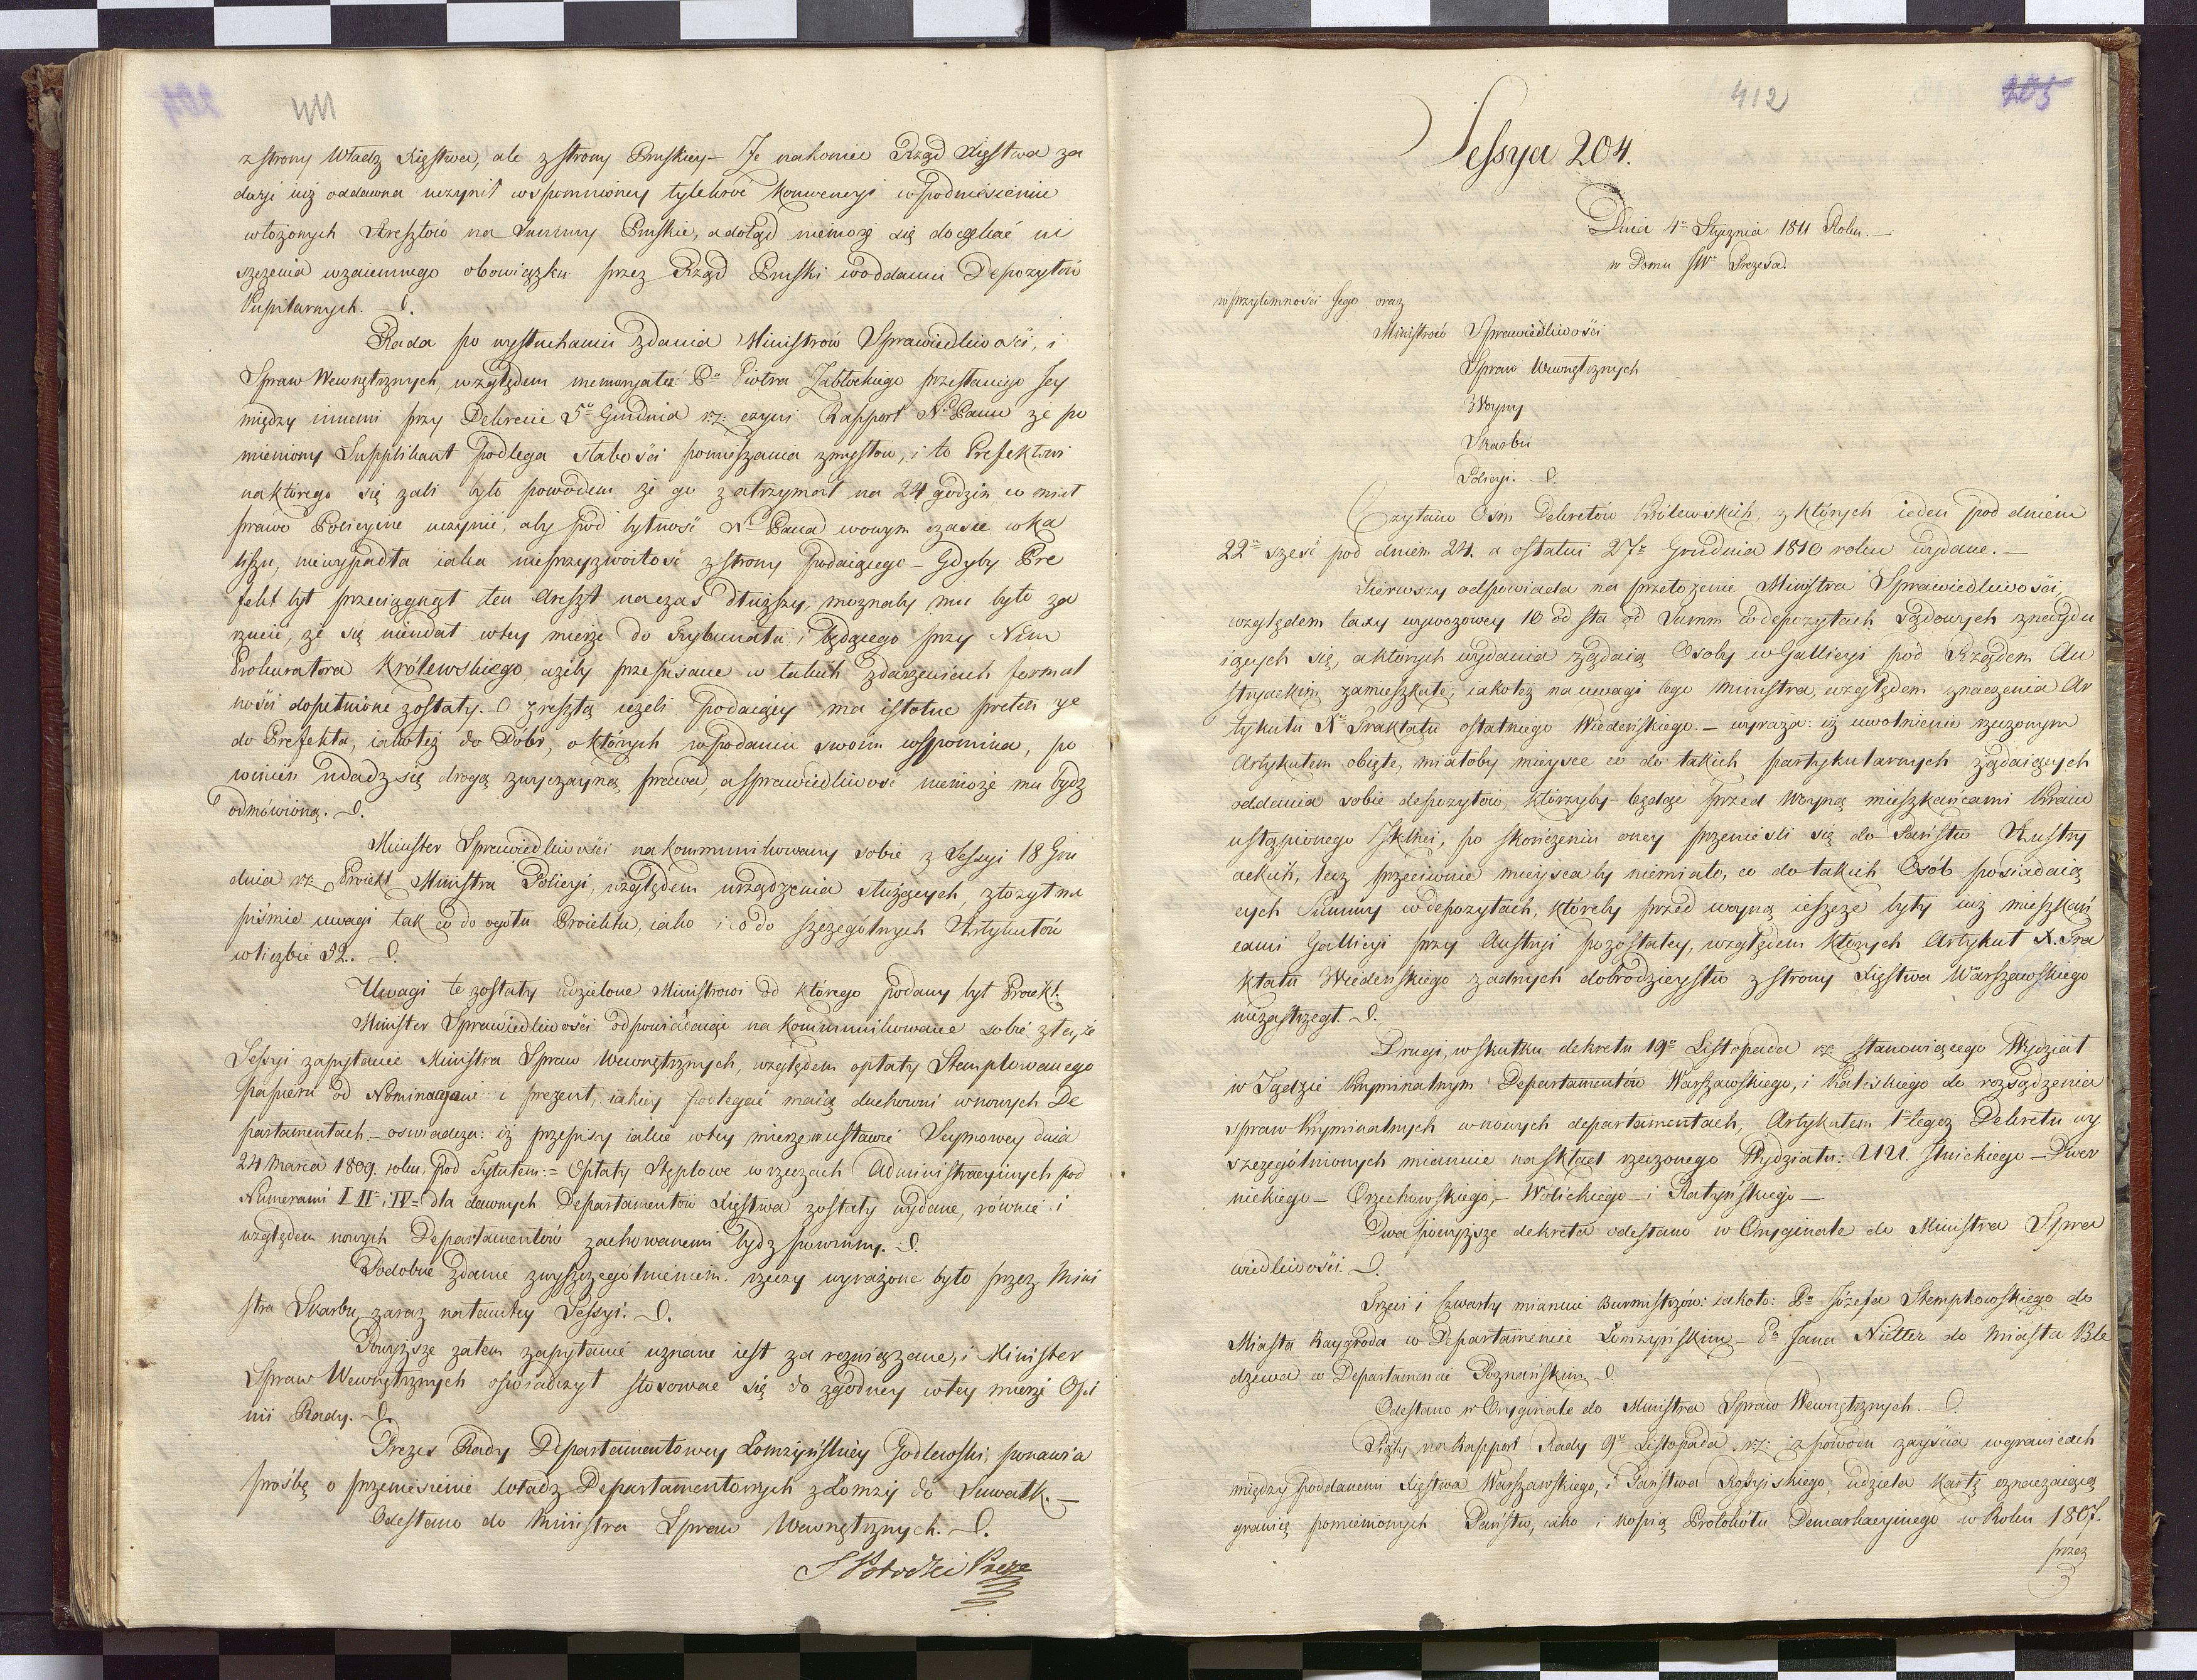 411
z strony Władz Xięstwa, ale z strony Pruskiey – Że nakoniec Rząd Xięstwa za
dosyć iuż oddawna uczynił wspomnioney tylekroć Konwencyi w podniesieniu
włożonych Aresztów na Summy Pruskie, a dotąd niemoże się doczekać ui
szczenia wzaiemnego obowiązku przez Rząd Pruski w oddaniu Depozytów
Pupilarnych.
Rada po wysłuchaniu zdania Ministrów Sprawiedliwości, i
Spraw Wewnętrznych, względem memoryału Pa Piotra Zabłockiego przesłanego Jey
między innemi przy Dekrecie 5o Grudnia rz: czyni Rapport N. Panu że po
mieniony Supplikant podlega słabości pomieszania zmysłow, i to Prefektowi
na którego się żali było powodem że go zatrzymał na 24 godzin co miał
prawo Policyine uczynić, aby pod bytność N. Pana w owym czasie w Ka
liszu, niewypadła iaka nieprzyzwoitość z strony Podaiącego – Gdyby Pre
fekt był przeciągnął ten Areszt na czas dłuższy, moznaby mu było za
rzucić, że się nieudał w tey mierze do Trybunału i będącego przy Nim
Prokuratora Królewskiego, ażeby przepisane w takich zdarzeniach formal
ności dopełnione zostały. zresztą ieżeli Podaiący ma istotne pretensye
do Prefekta, iakoteż do Dóbr, o których w podaniu swoim wspomina, po
winien udadź się drogą zwyczayną prawa, a sprawiedliwość niemoże mu bydź
odmówioną.
Minister Sprawiedliwości na kommunikowany sobie z Sessyi 18 Gru
dnia rz: Proiekt Ministra Policyi, względem urządzenia służących, złożył na
piśmie uwagi tak co do ogółu Proiektu, iako i co do szczególnych Artykułów
w liczbie 32.
Uwagi te zostały udzielone Ministrowi od którego podany był Proiekt.
Minister Sprawiedliwości odpowiadaiąc na kommunikowane sobie z teyże
Sessyi zapytanie Ministra Spraw Wewnętrznych, względem opłaty Stemplowanego
papieru od Nominacyi i prezent, iakiey podlegać maią duchowni w nowych De
partamentach – oswiadcza: iż przepisy iakie w tey mierze w ustawie Seymowey dnia
24 Marca 1809. roku, pod Tytułem: = Opłaty Stęplowe w rzeczach Administracyinych pod
Numerami I II i IV – dla dawnych Departamentów Xięstwa zostały wydane, równie i
względem nowych Departamentów zachowanemi bydź powinny.
Podobne zdanie z wyszczególnieniem rzeczy wyrażone było przez Mini
stra Skarbu, zaraz na tamtey Sessyi.
Powyższe zatem zapytanie uznane iest za rozwiązane, i Minister
Spraw Wewnętrznych oświadczył stosować się do zgodney w tey mierze Opi
nii Rady.
Prezes Rady Departamentowey Łomżyńskiey Godlewski, ponawia
prośbę o przeniesienie władz Departamentowych z Łomży do Suwałk. –
Odesłano do Ministra Spraw Wewnętrznych.
S Potocki Preze
412
205
Sessya 204.
Dnia 4o Stycznia 1811 Roku. –
w Domu JW. Prezesa.
w przytomności Jego oraz
Ministrów Sprawiedliwości
Spraw Wewnętrznych
Woyny
Skarbu
Policyi.
Czytano Ośm Dekretów Królewskich, z których ieden pod dniem
22o sześć pod dniem 24. a ostatni 27o Grudnia 1810 roku wydane. –
Pierwszy odpowiada na przełożenie Ministra Sprawiedliwości,
względem taxy wywozowey 10 od sta od Summ w depozytach Sądowych znaydu
iących się, a których wydania żądaią Osoby w Gallicyi pod Rządem Au
stryackim zamieszkałe; iakoteż na uwagi tego Ministra, względem znaczenia Ar
tykułu Xo Traktatu ostatniego Wiedeńskiego. – wyraża: iż uwolnienie rzeczonym
Artykułem obięte, miałoby mieysce co do takich partykularnych żądaiących
oddania sobie depozytów, którzyby będąc przed Woyną mieszkańcami Kraiu
ustąpionego Xsttwi, po skończeniu oney przenieśli się do Państw Austry
ackich, lecz przeciwnie mieysca by niemiało, co do takich Osób posiadaią
cych Summy w depozytach, któreby przed woyną ieszcze były iuż mieszkań
cami Gallicyi przy Austryi pozostałey, względem których Artykuł X. Tra
ktatu Wiedeńskiego żadnych dobrodzieystw z strony Xięstwa Warszawskiego
niezastrzegł.
Drugi, w skutku dekretu 19o Listopada rz: stanowiącego Wydział
w Sądzie Kryminalnym Departamentów Warszawskiego, i Kaliskiego do rozsądzenia
spraw Kryminalnych w nowych departamentach, Artykułem 1o tegoż Dekretu wy
szczegolnionych mianuie na skład rzeczonego Wydziału: UU. Ilnickiego – Dwer
nickiego – Orzechowskiego, – Wolickiego – i Ratyńskiego –
Dwa powyższe dekreta odesłano w Oryginale do Ministra Spra
wiedliwości.
Trzeci i Czwarty mianuie Burmistrzów: iakoto: Pa Józefa Stempkowskiego do
Miasta Raygroda w Departamencie Łomżyńskim – Pa Jana Nieller do Miasta Ble
dzewa w Departamencie Poznańskim.
Odesłano w Oryginale do Ministra Spraw Wewnętrznych.
Piąty na Rapport Rady 9o Listopada rz: z powodu zayścia w granicach
między poddanemi Xięstwa Warszawskiego, i Państwa Rossyiskiego, udziela kartę oznaczaiącą
granicę pomienionych Państw, iako i kopią Protokółu Demarkacyinego w Roku 1807.
przez